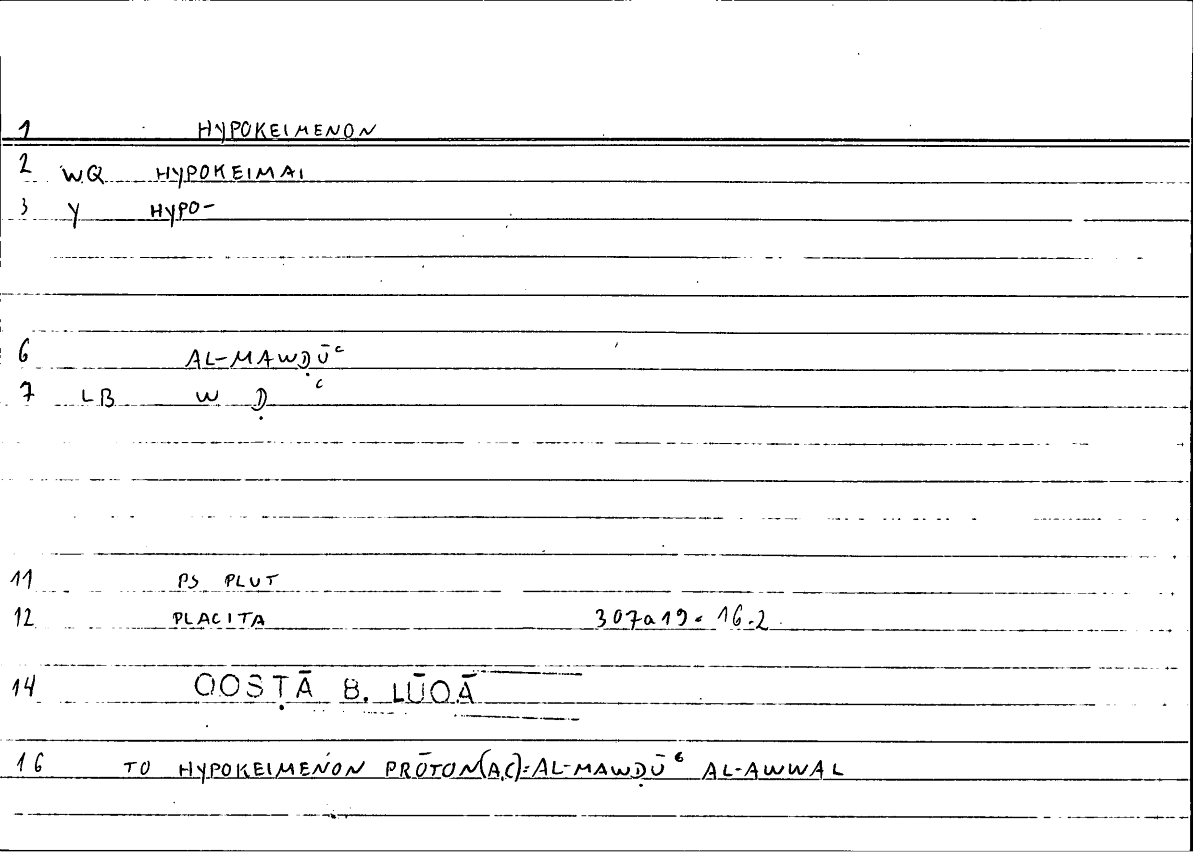 1 HYPOKEIMENON
2 WQ HYPOKEIMAI
3 Y HYPO-
6 AL-MAWḌŪʿ
7 LB W Ḍ ʿ
11 PS PLUT
12 PLACITA 307a19 = 16.2
14 QOSṬĀ B. LŪQĀ
16 TO HYPOKEIMENON PRŌTON(AC)=AL-MAWḌŪʿ AL-AWWAL